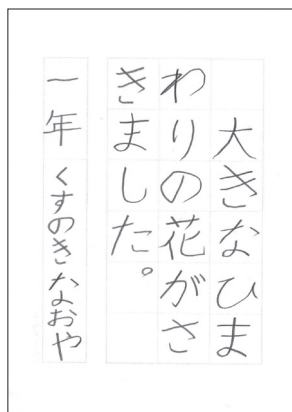 大きなひま
わりの花がさ
きました。
一年 くすのきなおや